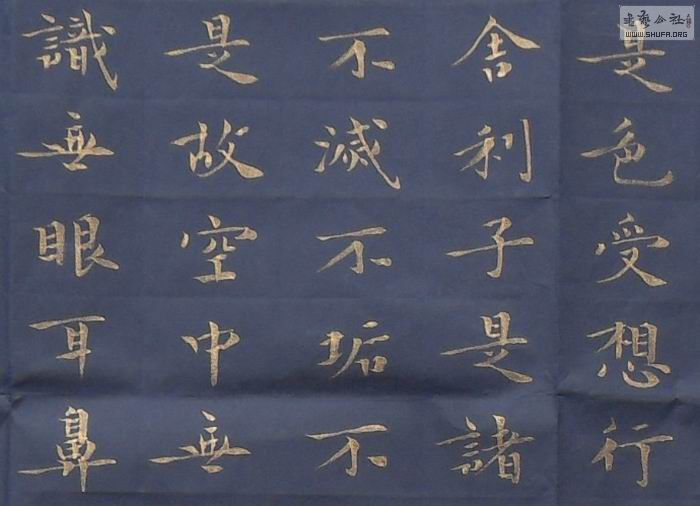 是色受想行
舍利子是諸
不滅不垢不
是故空中無
識無眼耳鼻
書藝公社
WWW.SHUFA.ORG